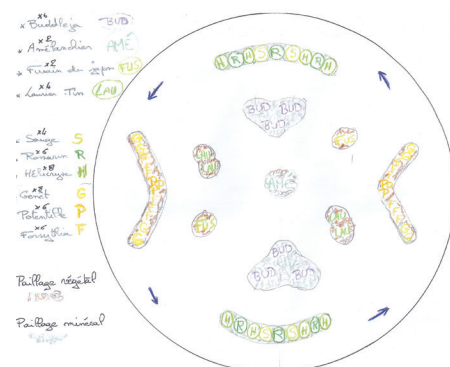 x4
* Buddleja BUD
x2
* Amélanchier AMÉ
x2
* Fusain du japon FUS
x4
* Laurier-Tin LAU
x4
* Sauge S
x6
* Romarin R
x8
* Hélicryse H
x2
Genêt G
x6
Potentille P
x6
Forsythia F
Paillage végétal
Paillage minéral
HRHSRSHRH
BUD BUD
BUD
FUS
LAU
LAU
AMÉ
FUS
LAU
LAU
BUD
BUD BUD
HRHSRSHRH